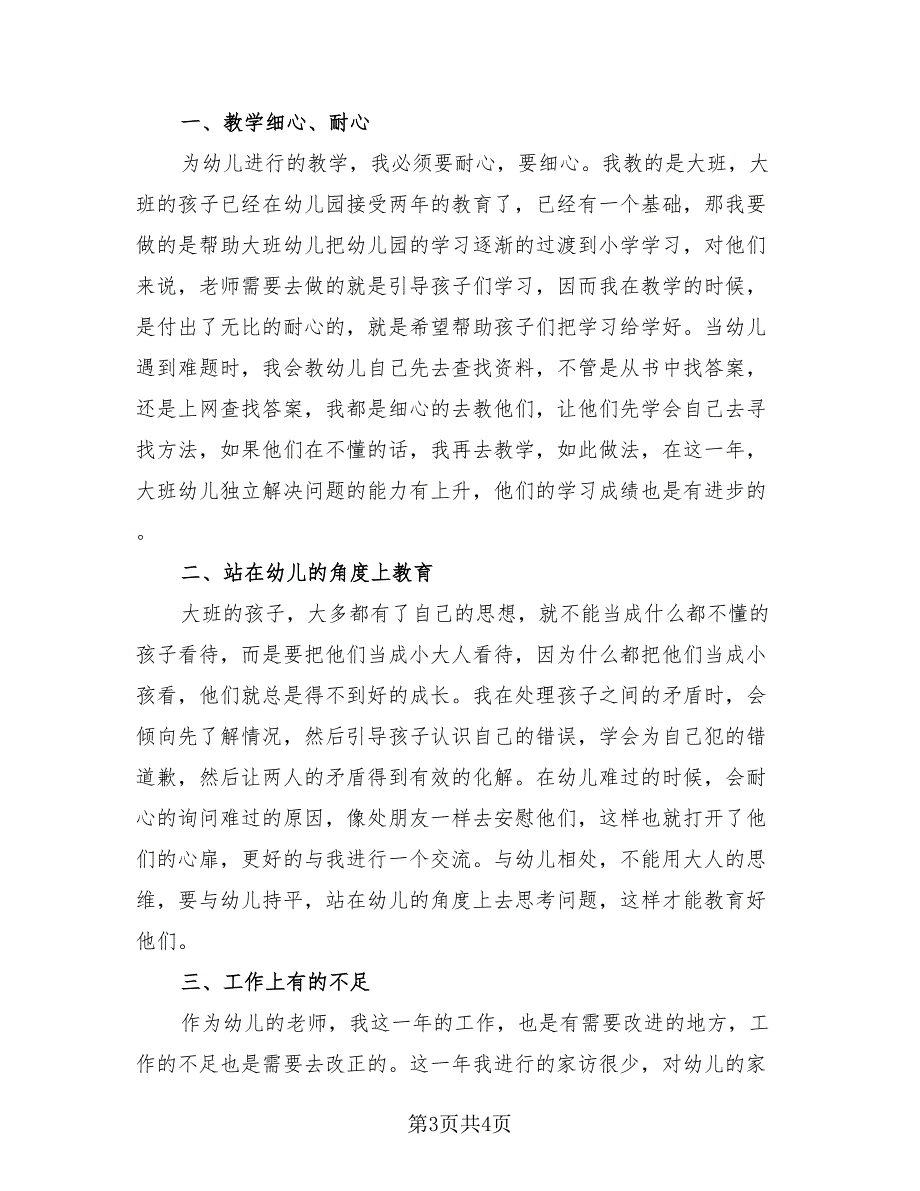 一、教学细心、耐心
为幼儿进行的教学，我必须要耐心，要细心。我教的是大班，大
班的孩子已经在幼儿园接受两年的教育了，已经有一个基础，那我要
做的是帮助大班幼儿把幼儿园的学习逐渐的过渡到小学学习，对他们
来说，老师需要去做的就是引导孩子们学习，因而我在教学的时候，
是付出了无比的耐心的，就是希望帮助孩子们把学习给学好。当幼儿
遇到难题时，我会教幼儿自己先去查找资料，不管是从书中找答案，
还是上网查找答案，我都是细心的去教他们，让他们先学会自己去寻
找方法，如果他们在不懂的话，我再去教学，如此做法，在这一年，
大班幼儿独立解决问题的能力有上升，他们的学习成绩也是有进步的
。
二、站在幼儿的角度上教育
大班的孩子，大多都有了自己的思想，就不能当成什么都不懂的
孩子看待，而是要把他们当成小大人看待，因为什么都把他们当成小
孩看，他们就总是得不到好的成长。我在处理孩子之间的矛盾时，会
倾向先了解情况，然后引导孩子认识自己的错误，学会为自己犯的错
道歉，然后让两人的矛盾得到有效的化解。在幼儿难过的时候，会耐
心的询问难过的原因，像处朋友一样去安慰他们，这样也就打开了他
们的心扉，更好的与我进行一个交流。与幼儿相处，不能用大人的思
维，要与幼儿持平，站在幼儿的角度上去思考问题，这样才能教育好
他们。
三、工作上有的不足
作为幼儿的老师，我这一年的工作，也是有需要改进的地方，工
作的不足也是需要去改正的。这一年我进行的家访很少，对幼儿的家
第3页共4页